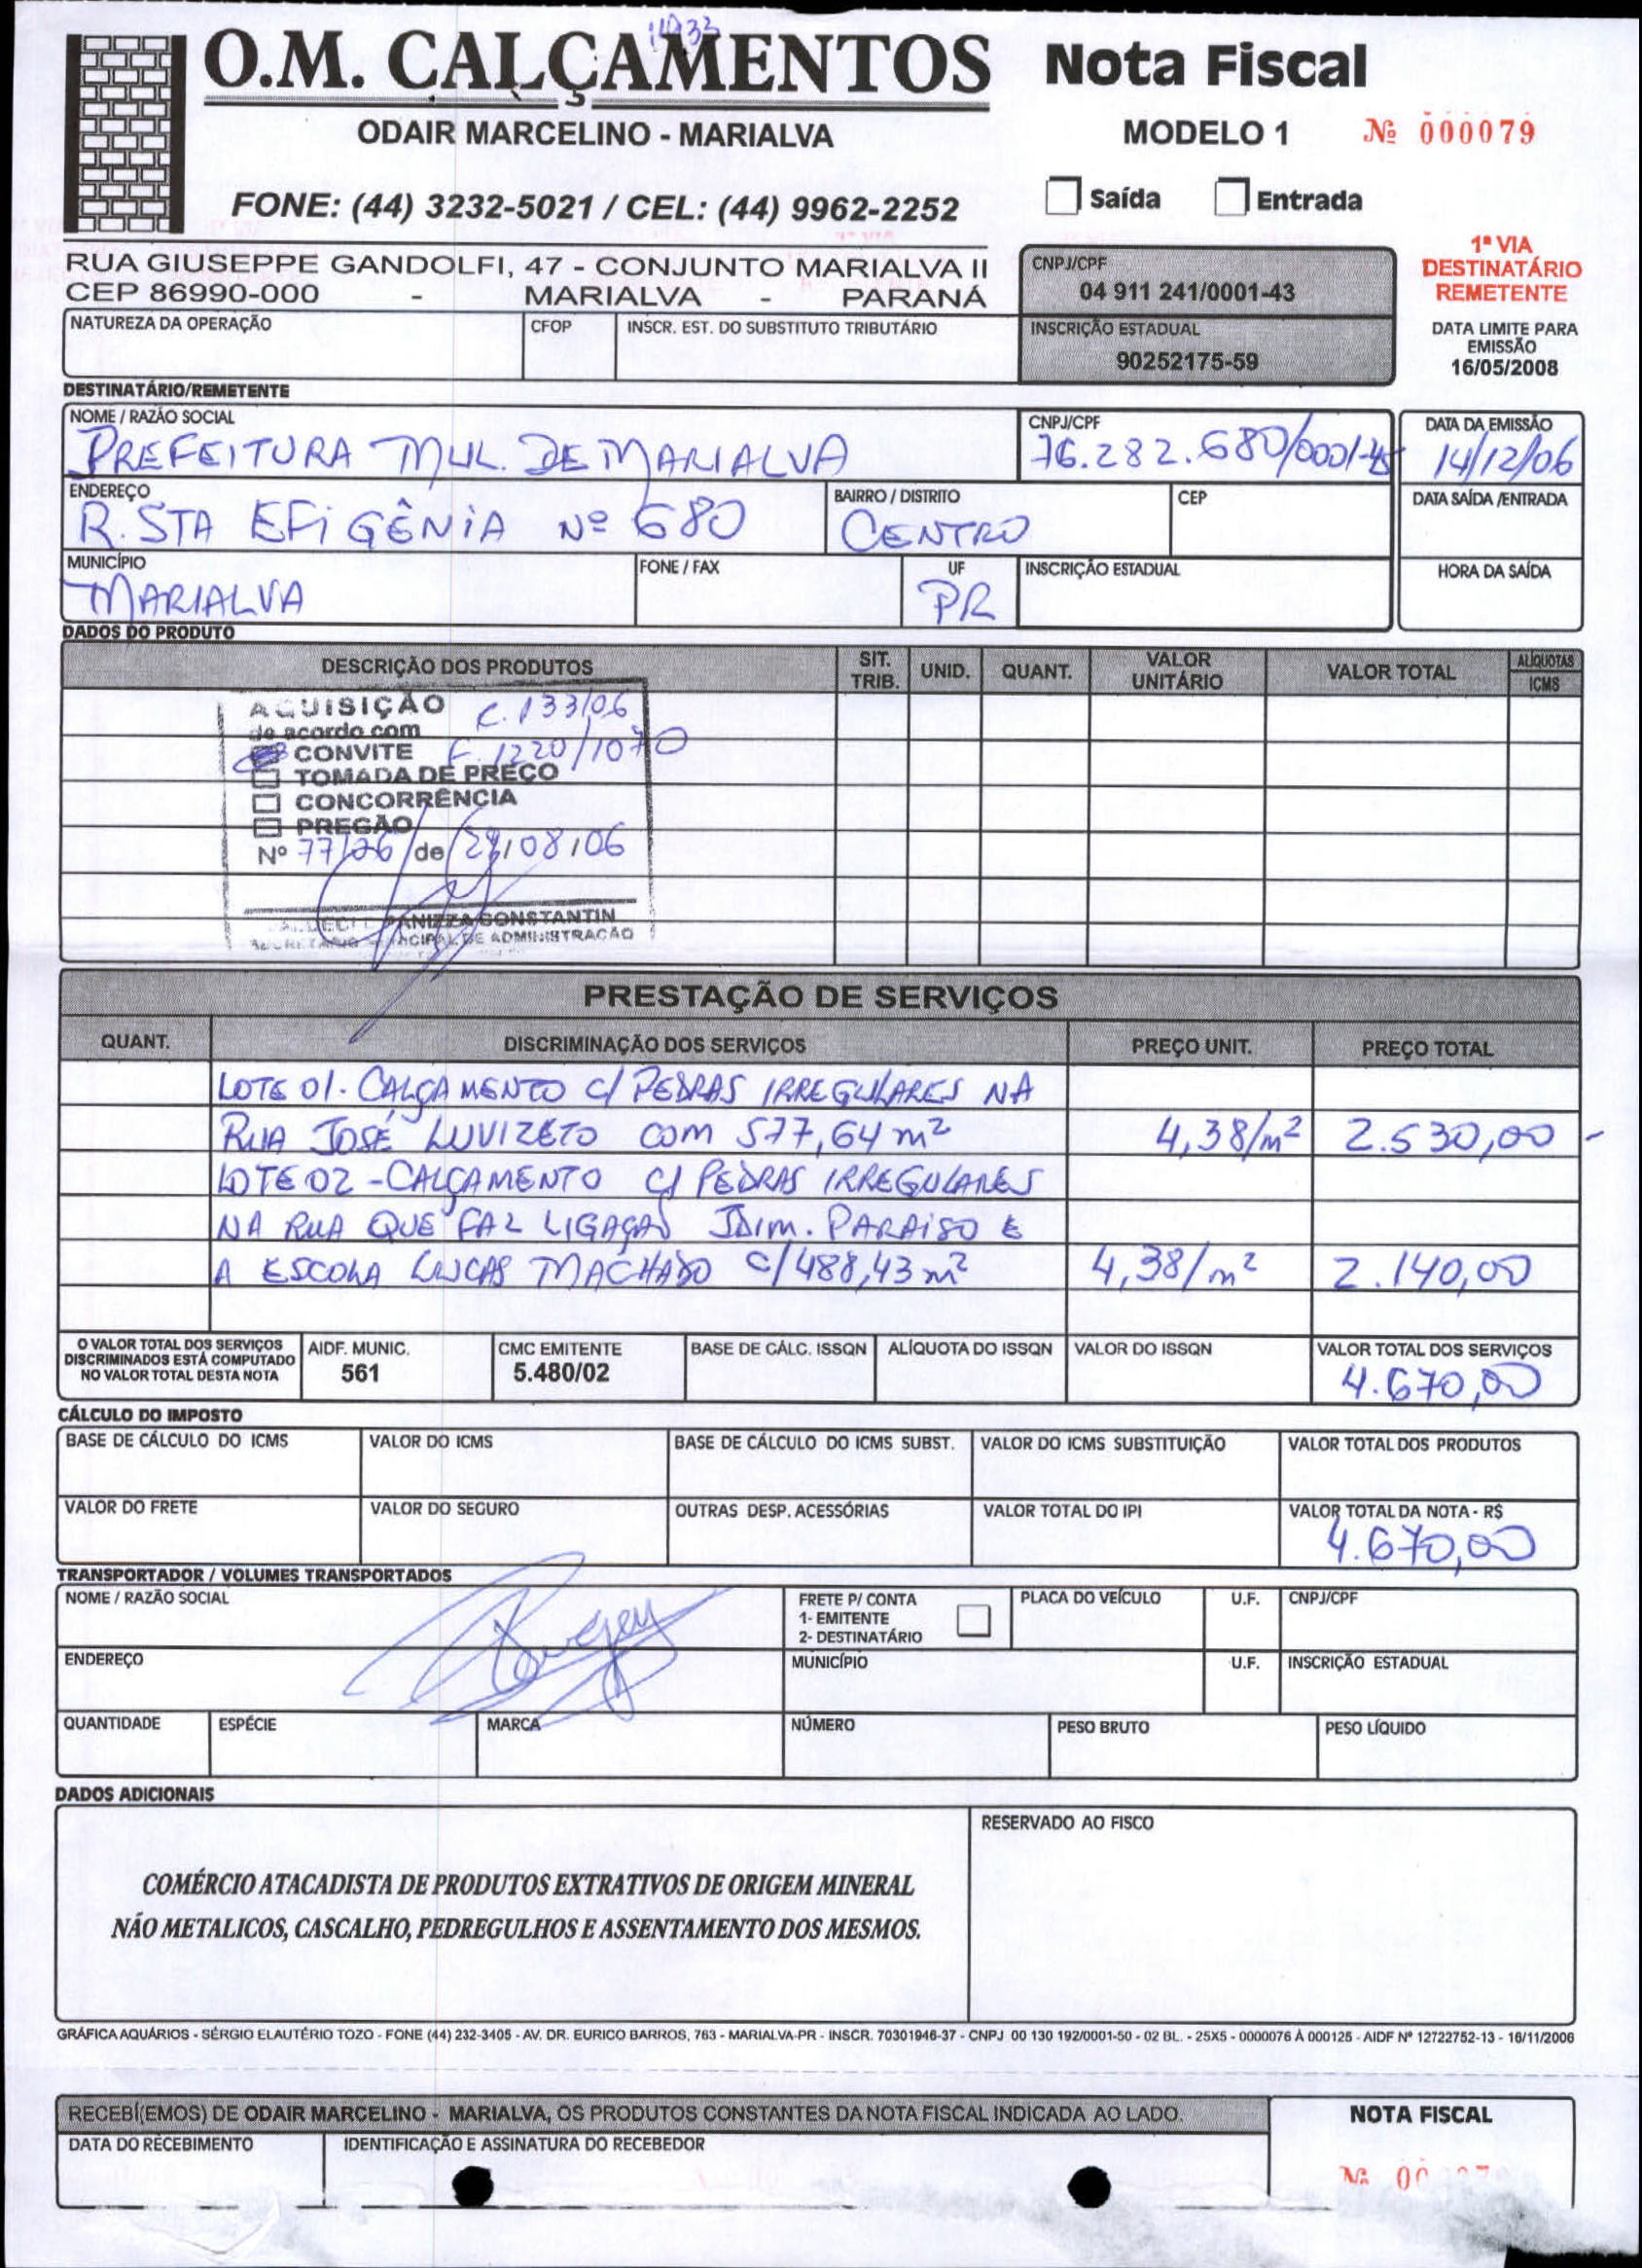 O.M. CALÇAMENTOS
ODAIR MARCELINO - MARIALVA
FONE: (44) 3232-5021 / CEL: (44) 9962-2252
RUA GIUSEPPE GANDOLFI, 47 - CONJUNTO MARIALVA II
CEP 86990-000 - MARIALVA - PARANÁ
Nota Fiscal
MODELO 1 Nº 000079
Saída Entrada
CNPJ/CPF
04 911 241/0001-43
INSCRIÇÃO ESTADUAL
90252175-59
1ª VIA
DESTINATÁRIO
REMETENTE
DATA LIMITE PARA
EMISSÃO
16/05/2008
NATUREZA DA OPERAÇÃO CFOP INSCR. EST. DO SUBSTITUTO TRIBUTÁRIO
DESTINATÁRIO/REMETENTE
NOME / RAZÃO SOCIAL CNPJ/CPF DATA DA EMISSÃO
PREFEITURA MUL. DE MARIALVA 76.282.680/0001-45 14/12/06
ENDEREÇO BAIRRO / DISTRITO CEP DATA SAÍDA /ENTRADA
R. STA EFIGÊNIA Nº 680 CENTRO
MUNICÍPIO FONE / FAX UF INSCRIÇÃO ESTADUAL HORA DA SAÍDA
MARIALVA PR
DADOS DO PRODUTO
DESCRIÇÃO DOS PRODUTOS SIT. TRIB. UNID. QUANT. VALOR UNITÁRIO VALOR TOTAL ALÍQUOTAS ICMS
AQUISIÇÃO C. 133/06
de acordo com
CONVITE F. 1220/1070
TOMADA DE PREÇO
CONCORRÊNCIA
PREGÃO
Nº 77/06 de 28/08/06
PANIZZA CONSTANTIN
DE ADMINISTRAÇÃO
PRESTAÇÃO DE SERVIÇOS
QUANT. DISCRIMINAÇÃO DOS SERVIÇOS PREÇO UNIT. PREÇO TOTAL
LOTE 01. CALÇAMENTO C/ PEDRAS IRREGULARES NA
RUA JOSÉ LUVIZETO COM 577,64 m² 4,38/m² 2.530,00 -
LOTE 02 - CALÇAMENTO C/ PEDRAS IRREGULARES
NA RUA QUE FAZ LIGAÇÃO JDIM. PARAISO E
A ESCOLA LUCAS MACHADO C/ 488,43 m² 4,38/m² 2.140,00
O VALOR TOTAL DOS SERVIÇOS DISCRIMINADOS ESTÁ COMPUTADO NO VALOR TOTAL DESTA NOTA
AIDF. MUNIC. CMC EMITENTE BASE DE CÁLC. ISSQN ALÍQUOTA DO ISSQN VALOR DO ISSQN VALOR TOTAL DOS SERVIÇOS
561 5.480/02 4.670,00
CÁLCULO DO IMPOSTO
BASE DE CÁLCULO DO ICMS VALOR DO ICMS BASE DE CÁLCULO DO ICMS SUBST. VALOR DO ICMS SUBSTITUIÇÃO VALOR TOTAL DOS PRODUTOS
VALOR DO FRETE VALOR DO SEGURO OUTRAS DESP. ACESSÓRIAS VALOR TOTAL DO IPI VALOR TOTAL DA NOTA - R$
4.670,00
TRANSPORTADOR / VOLUMES TRANSPORTADOS
NOME / RAZÃO SOCIAL FRETE P/ CONTA 1- EMITENTE 2- DESTINATÁRIO PLACA DO VEÍCULO U.F. CNPJ/CPF
ENDEREÇO MUNICÍPIO U.F. INSCRIÇÃO ESTADUAL
QUANTIDADE ESPÉCIE MARCA NÚMERO PESO BRUTO PESO LÍQUIDO
DADOS ADICIONAIS
RESERVADO AO FISCO
COMÉRCIO ATACADISTA DE PRODUTOS EXTRATIVOS DE ORIGEM MINERAL
NÃO METALICOS, CASCALHO, PEDREGULHOS E ASSENTAMENTO DOS MESMOS.
GRÁFICA AQUÁRIOS - SÉRGIO ELAUTÉRIO TOZO - FONE (44) 232-3405 - AV. DR. EURICO BARROS, 763 - MARIALVA-PR - INSCR. 70301946-37 - CNPJ 00 130 192/0001-50 - 02 BL. - 25X5 - 0000076 À 000125 - AIDF Nº 12722752-13 - 16/11/2006
RECEBI(EMOS) DE ODAIR MARCELINO - MARIALVA, OS PRODUTOS CONSTANTES DA NOTA FISCAL INDICADA AO LADO.
DATA DO RECEBIMENTO IDENTIFICAÇÃO E ASSINATURA DO RECEBEDOR
NOTA FISCAL
Nº